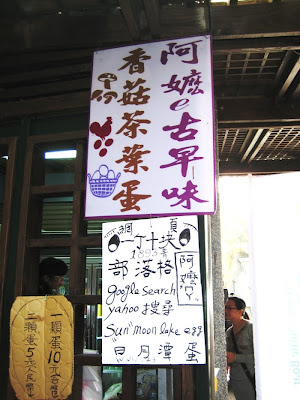 阿嬤e古早味
香菇茶葉蛋
網頁
部落格
google search
yahoo 搜尋
"Sun" moon lake egg
日月潭 蛋
一顆蛋10元台幣
三顆蛋5元人民幣